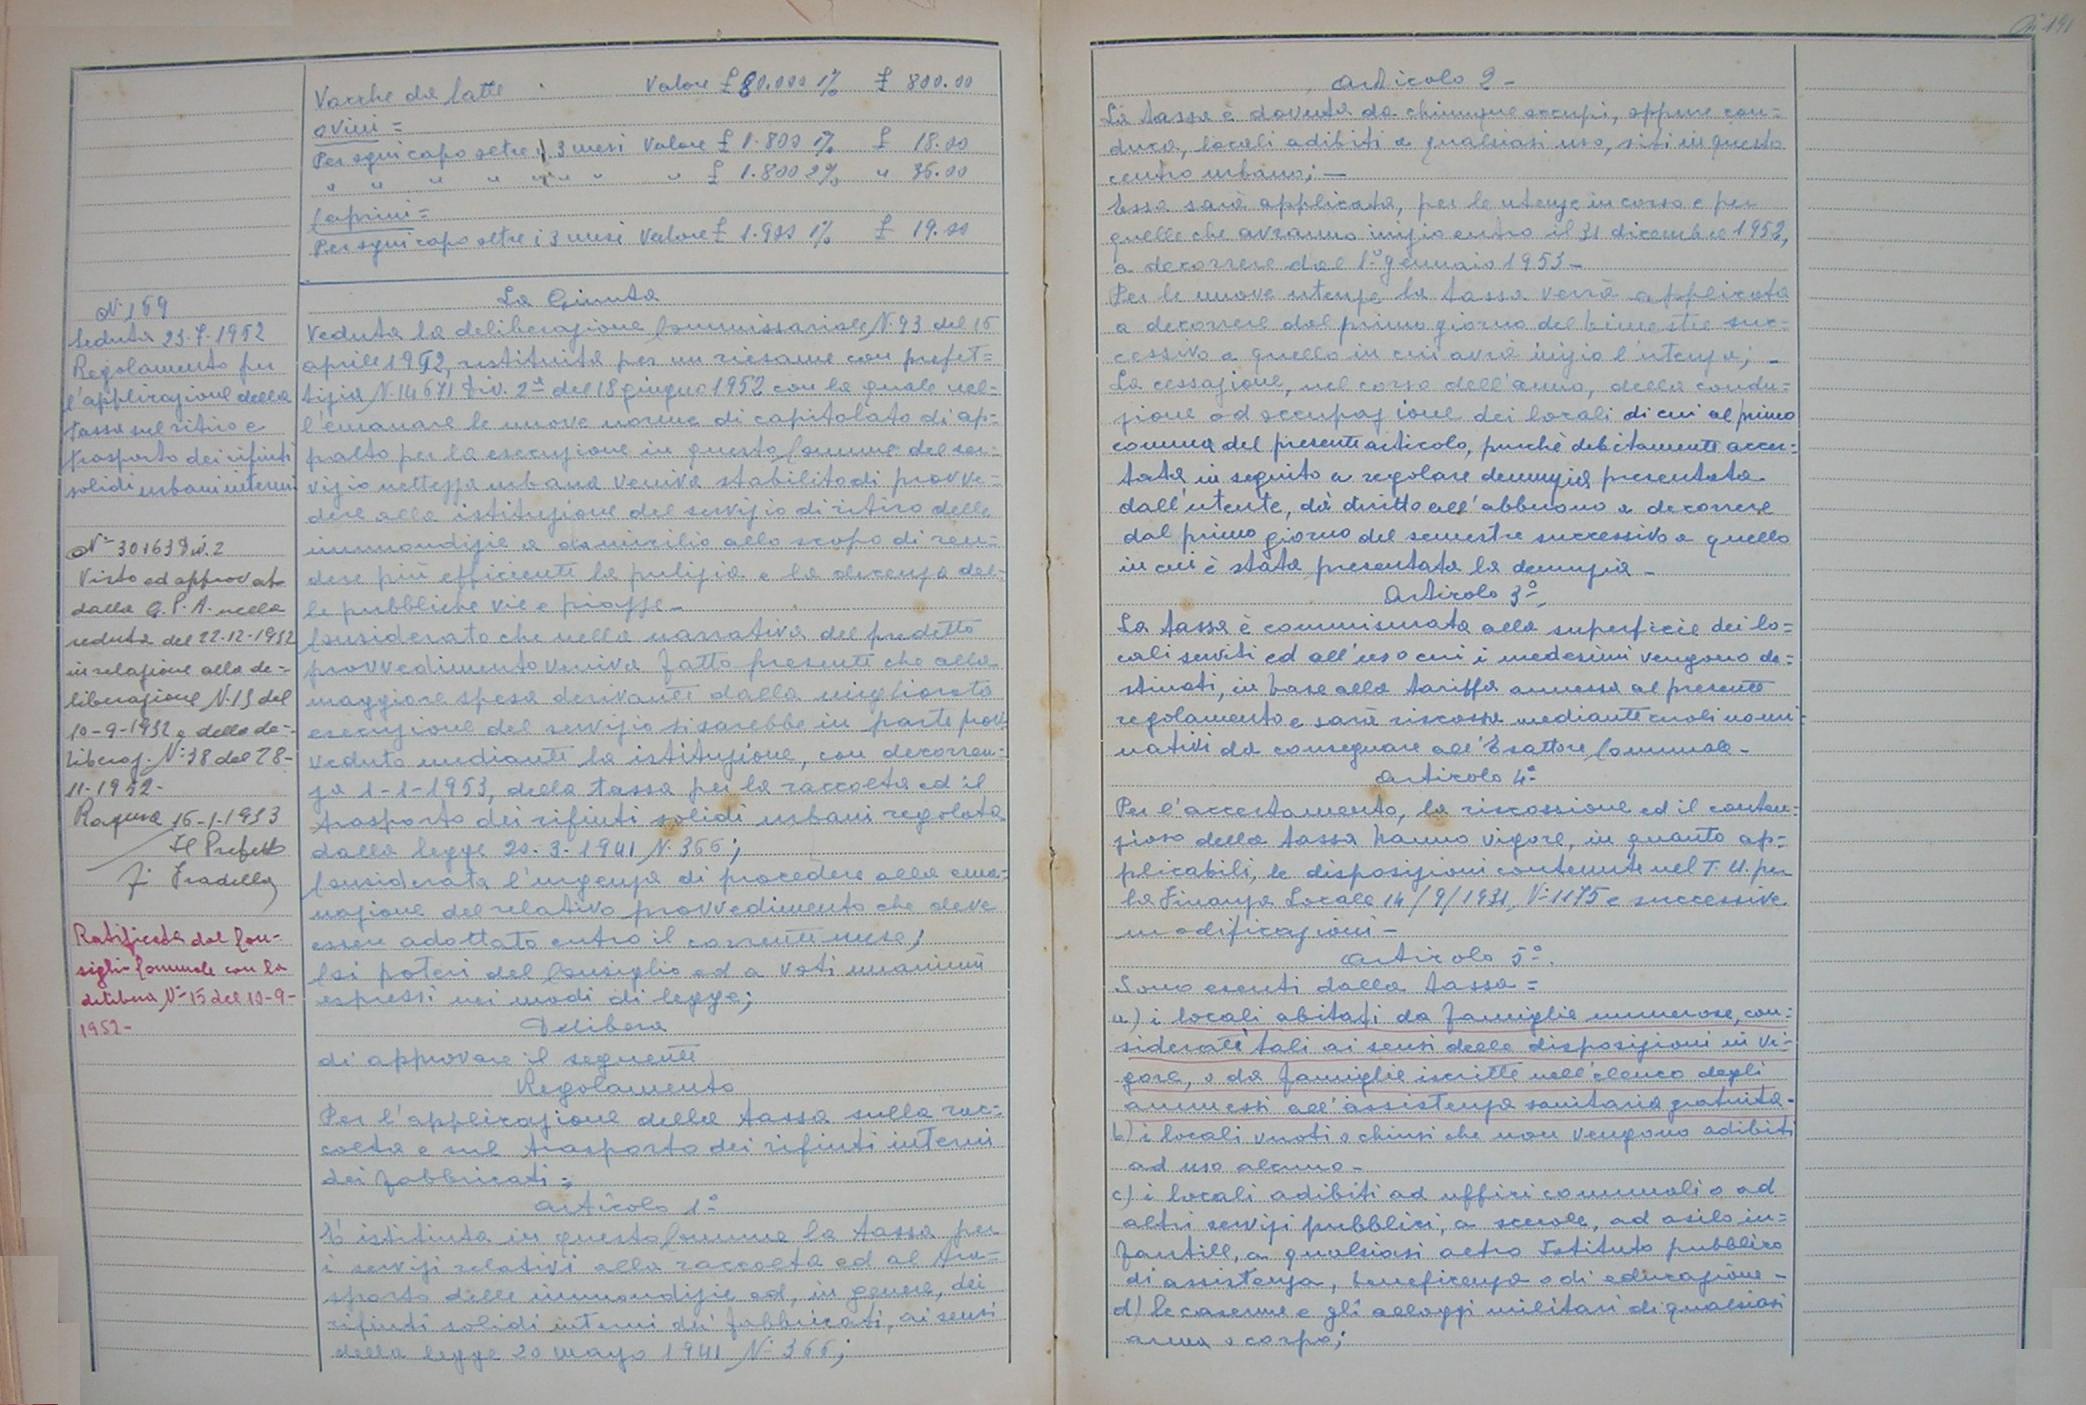 Vacche da latte Valore £ 80.000 1% £ 800.00
ovini =
Per ogni capo oltre i 3 mesi Valore £ 1.800 1% £ 18.00
" " " " " " " " £ 1.800 2% " 36.00
Caprini =
Per ogni capo oltre i 3 mesi Valore £ 1.900 1% £ 19.00
N. 159
Seduta 23.7.1952
Regolamento per
l'applicazione della
tassa sul ritiro e
trasporto dei rifiuti
solidi urbani interni
N° 30163 Div. 2
Visto ed approvato
dalla G.P.A. nella
seduta del 22-12-1952
in relazione alla de-
liberazione N.15 del
10-9-1952 e della de-
liberaz. N° 38 del 28-
11-1952-
Ragusa 16-1-1953
Il Prefetto
Ratificata dal Con-
siglio Comunale con la
delibera N° 15 del 10-9-
1952-
La Giunta
Veduta la deliberazione Commissariale N. 93 del 15
aprile 1952, restituita per un riesame con prefet=
tizia N. 14671 Div. 2ª del 18 giugno 1952 con la quale nel-
l'emanare le nuove norme di capitolato di ap-
palto per la esecuzione in questo Comune del ser-
vizio nettezza urbana veniva stabilito di provve-
dere alla istituzione del servizio di ritiro delle
immondizie a domicilio allo scopo di ren-
dere più efficiente la pulizia e la decenza del-
le pubbliche vie e piazze-
Considerato che nella narrativa del predetto
provvedimento veniva fatto presente che alla
maggiore spesa derivante dalla migliorata
esecuzione del servizio si sarebbe in parte prov
veduto mediante la istituzione, con decorren-
za 1-1-1953, della tassa per la raccolta ed il
trasporto dei rifiuti solidi urbani regolata
dalla legge 20-3-1941 N. 366;
Considerata l'urgenza di procedere alla ema-
nazione del relativo provvedimento che deve
essere adottato entro il corrente mese;
Coi poteri del Consiglio ed a voti unanimi
espressi nei modi di legge;
Delibera
di approvare il seguente
Regolamento
Per l'applicazione della tassa sulla rac-
colta e sul trasporto dei rifiuti interni
dei fabbricati:
Articolo 1°
E' istituita in questo Comune la tassa per
i servizi relativi alla raccolta ed al tra=
sporto delle immondizie ed, in genere, dei
rifiuti solidi interni dei fabbricati, ai sensi
della legge 20 marzo 1941 N° 366;
191
Articolo 2-
La tassa è dovuta da chiunque occupi, oppure con=
duca, locali adibiti a qualsiasi uso, siti in questo
centro urbano;-
Essa sarà applicata, per le utenze in corso e per
quelle che avranno inizio entro il 31 dicembre 1952,
a decorrere dal 1° gennaio 1953-
Per le nuove utenze la tassa verrà applicata
a decorrere dal primo giorno del bimestre suc-
cessivo a quello in cui avrà inizio l'utenza;-
La cessazione, nel corso dell'anno, della condu=
zione od occupazione dei locali di cui al primo
comma del presente articolo, purchè debitamente accer=
tata in seguito a regolare denunzia presentata
dall'utente, dà diritto all'abbuono a decorrere
dal primo giorno del semestre successivo a quello
in cui è stata presentata la denunzia-
Articolo 3°-
La tassa è commisurata alla superficie dei lo=
cali serviti ed all'uso cui i medesimi vengono de=
stinati, in base alla tariffa annessa al presente
regolamento e sarà riscossa mediante ruoli nomi
nativi da consegnare all'Esattore Comunale-
Articolo 4°
Per l'accertamento, la riscossione ed il conten=
zioso della tassa hanno vigore, in quanto ap=
plicabili, le disposizioni contenute nel T.U. per
la Finanza Locale 14/9/1931, N° 1175 e successive
modificazioni-
Articolo 5°-
Sono esenti dalla tassa=
a) i locali abitati da famiglie numerose, con=
siderate tali ai sensi delle disposizioni in vi-
gore, o da famiglie iscritte nell'elenco degli
ammessi all'assistenza sanitaria gratuita-
b) i locali vuoti o chiusi che non vengono adibiti
ad uso alcuno-
c) i locali adibiti ad uffici comunali o ad
altri servizi pubblici, a scuole, ad asilo in=
fantile, a qualsiasi altro Istituto pubblico
di assistenza, beneficenza o di educazione-
d) le caserme e gli alloggi militari di qualsiasi
arma o corpo;